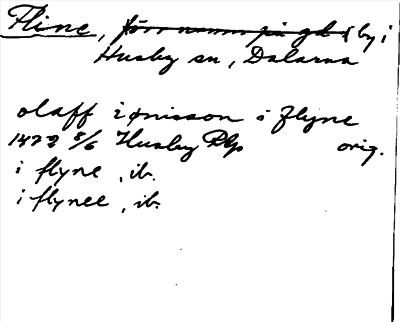 Fline, förr namn på gd i by i
Husby sn, Dalarna
olaff iønisson i Flyne
1472 8/6 Husby Rlp orig.
i flyne, ib.
i flynee, ib.